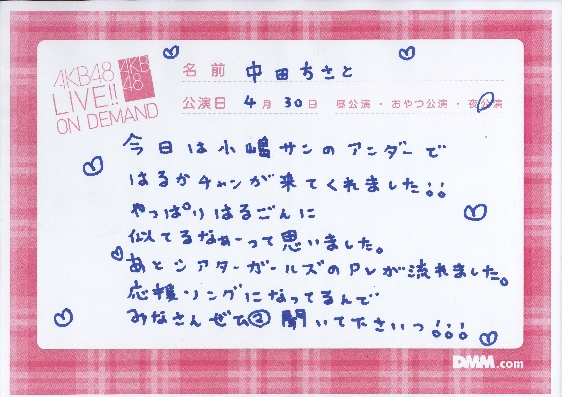 AKB48
LIVE!!
ON DEMAND
AKB
48
名前 中田ちさと
公演日 4月30日 昼公演・おやつ公演・夜公演
今日は小嶋サンのアンダーで
はるかチャンが来てくれました!!
やっぱりはるごんに
似てるなぁーって思いました。
あとシアターガールズのPVが流れました。
応援ソングになってるんで
みなさんぜひ② 聞いて下さいっ!!!
DMM.com